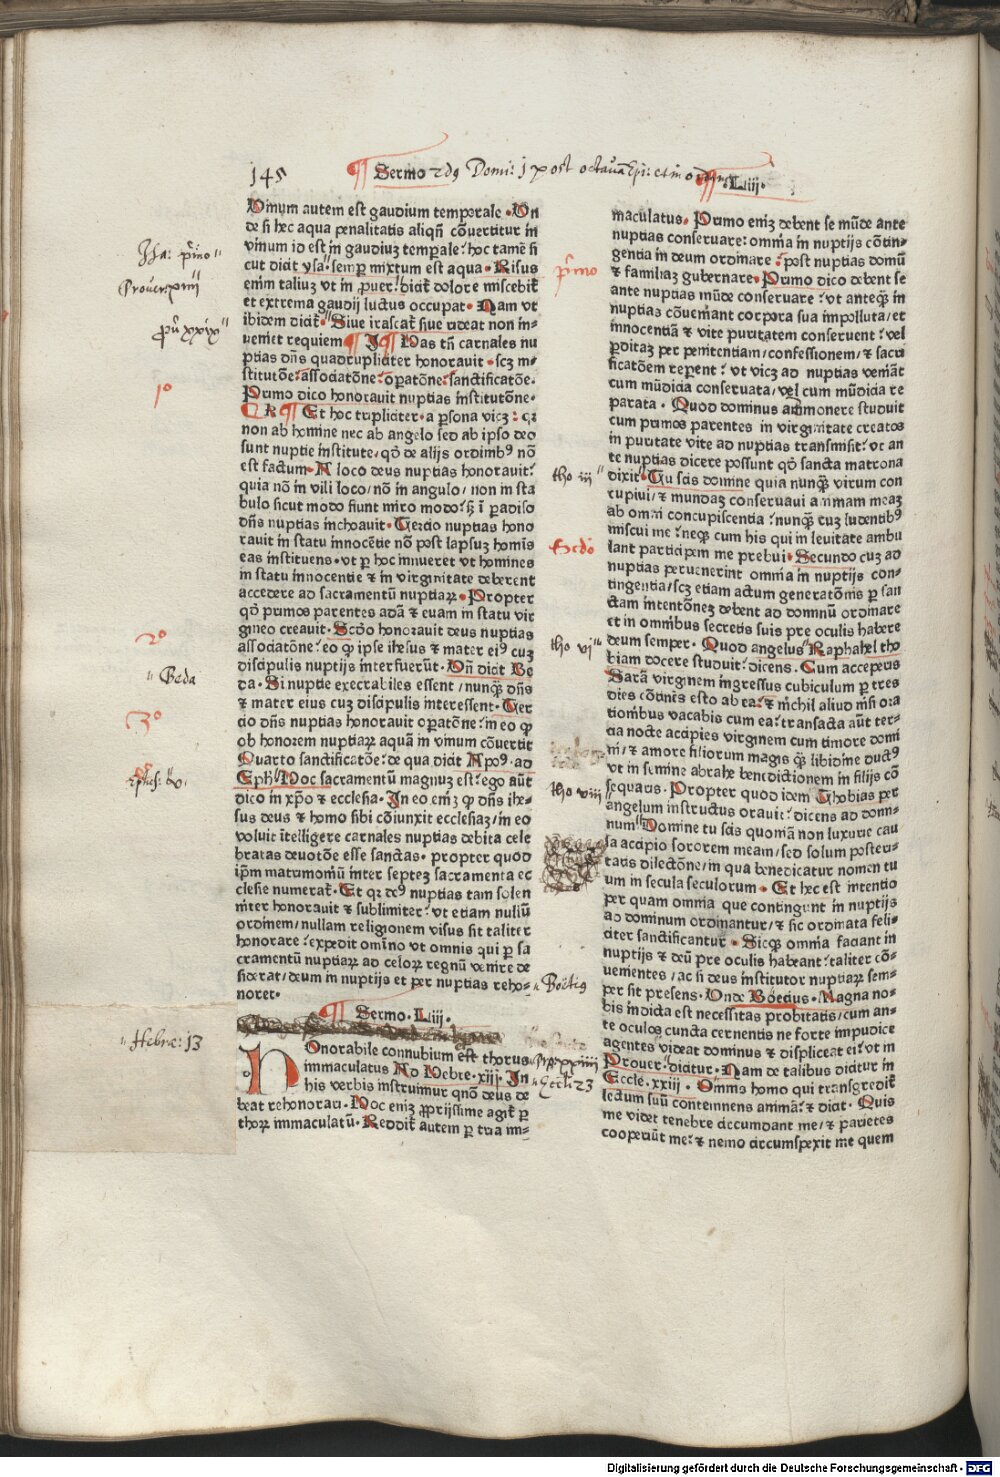 145
Sermo 2dꝯ Domi: j post octauā Epi:
.Liij.
Uinum autem est gaudium temporale. Un
de si hec aqua penalitatis aliqñ cōuertitur in
vinum id est in gaudiuꝫ tempale: hoc tamē si
cut dicit ysa. semꝑ mixtum est aqua. Risus
enim taliuꝫ vt in ꝓuer. dicit̄ dolore miscebit̄
et extrema gaudij luctus occupat. Nam vt
ibidem dicit̄. Siue irascat̄ siue rideat non in-
ueniet requiem. Has tn̄ carnales nu
ptias dn̄s quadrupliciter honorauit. scꝫ in-
stitutōe: associatōne: oꝑatōne: sanctificatōe.
Primo dico honorauit nuptias institutōne.
Et hoc tripliciter. a ꝑsona vicꝫ: qꝛ
non ab homine nec ab angelo sed ab ipso deo
sunt nuptie institute/ qd̄ de alijs ordinibꝰ nō
est factum. A loco deus nuptias honorauit:
quia nō in vili loco/ nō in angulo/ non in sta
bulo sicut modo fiunt miro modo: sꝫ ī ꝑadiso
dn̄s nuptias inchoauit. Tercio nuptias hono
rauit in statu innocētie nō post lapsuꝫ homīs
eas instituens. vt ꝑ hoc innueret vt homines
in statu innocentie ⁊ in virginitate deberent
accedere ad sacramentū nuptiaꝝ. Propter
qd̄ primos parentes adā ⁊ euam in statu vir
gineo creauit. Scd̄o honorauit deus nuptias
associatōne: eo ꝙ ipse ihesus ⁊ mater eiꝰ cuꝫ
discipulis nuptijs interfuerūt. Vn̄ dicit Be
da. Si nuptie execrabiles essent/ nunqꝫ dn̄s
⁊ mater eius cuꝫ discipulis interessent. Ter
cio dn̄s nuptias honorauit oꝑatōne: in eo ꝙ
ob honorem nuptiaꝝ aquā in vinum cōuertit
Quarto sanctificatōe: de qua dicit Apoꝰ. ad
Eph. Hoc sacramentū magnuꝫ est: ego aūt
dico in xp̄o ⁊ ecclesia. In eo eniꝫ ꝙ dn̄s ihe-
sus deus ⁊ homo sibi cōiunxit ecclesiaꝫ/ in eo
voluit ītelligere carnales nuptias debita cele
bratas deuotōe esse sanctas. propter quod
ip̄m matrimoniū inter septeꝫ sacramenta ec
clesie numerat̄. Et qꝛ deꝰ nuptias tam solen
niter honorauit ⁊ sublimiter: vt etiam nullū
ordinem/ nullam religionem visus sit taliter
honorare: expedit omīno vt omnis qui ꝑ sa
cramentū nuptiaꝝ ad celoꝝ regnū venire de
siderat/ deum in nuptijs et per nuptias reho-
noret.
Sermo .Liij.
Honorabile connubium est thorus
immaculatus Ad Hebre. xiij. In
his verbis instruimur qnō deus de
beat rehonorari. Hoc eniꝫ ꝓprijssime agit̄ ꝑ
thoꝝ immaculatū. Reddit̄ autem ꝑ tria im-
maculatus. Primo eniꝫ debent se mūde ante
nuptias conseruare: omnia in nuptijs cōtin-
gentia in deum ordinare: post nuptias domū
⁊ familiaꝫ gubernare. Primo dico debent se
ante nuptias mūde conseruare: vt anteqꝫ in
nuptias cōueniant corpora sua impolluta/ et
innocentiā ⁊ vite puritatem conseruent: vel
ꝑditaꝫ per penitentiam/ confessionem/ ⁊ sacri
ficatōem reperent: vt vicꝫ ad nuptias veniāt
cum mūdicia conseruata/ vel cum mūdicia re
parata. Quod dominus admonere studuit
cum primos parentes in virginitate creatos
in puritate vite ad nuptias transmisit: vt an
te nuptias dicere possunt qd̄ sancta matrona
dixit. Tu scis domine quia nunqꝫ virum con
cupiui/ ⁊ mundaꝫ conseruaui animam meaꝫ
ab omni concupiscentia: nunqꝫ cuꝫ ludentibꝰ
miscui me: neqꝫ cum his qui in leuitate ambu
lant participem me prebui. Secundo cuꝫ ad
nuptias peruenerint omnia in nuptijs con-
tingentia/ scꝫ etiam actum generatōnis ꝑ san
ctam intentōneꝫ debent ad domnū ordinare
et in omnibus secretis suis pre oculis habere
deum semper. Quod angelus Raphahel tho
biam docere studuit: dicens. Cum acceperis
Sarā virginem ingressus cubiculum ꝑ tres
dies cōtinēs esto ab ea: ⁊ nichil aliud nisi ora
tionibus vacabis cum ea: transacta aūt ter-
cia nocte accipies virginem cum timore domi
ni/ ⁊ amore filiorum magis qꝫ libidine ductꝰ
vt in semine abrahe benedictionem in filijs cō
sequaris. Propter quod idem Thobias per
angelum instructus orauit: dicens ad domi-
num. Domine tu scis quoniā non luxurie cau
sa accipio sororem meam/ sed solum posteri-
tatis dilectōne/ in qua benedicatur nomen tu
um in secula seculorum. Et hec est intentio
per quam omnia que contingunt in nuptijs
ad dominum ordinantur/ ⁊ sic ordinata feli-
citer sanctificantur. Sicqꝫ omnia faciant in
nuptijs ⁊ deū pre oculis habeant: taliter cō-
uenientes/ ac si deus institutor nuptiaꝝ sem-
per sit presens. Unde Boecius. Magna no-
bis indicta est necessitas probitatis/ cum an-
te oculos cuncta cernentis ne forte impudice
agentes videat dominus ⁊ displiceat ei: vt in
Prouer. dicitur. Nam de talibus dicitur in
Eccle. xxiii. Omnis homo qui transgredit̄
lectum suū contemnens animā: ⁊ dicit. Quis
me videt tenebre circumdant me/ ⁊ parietes
cooperiūt me: ⁊ nemo circumspexit me quem
Isa: prīo
Prouer: xiiii
prū xxix
1º
2º
Beda
3º
ephes: v.
Hebre: 13
prīmo
tho iii
Scdo
tho vi
tho viii
Boētiꝰ
prp: xxiiii
Eccli: 23
Digitalisierung gefördert durch die Deutsche Forschungsgemeinschaft - DFG